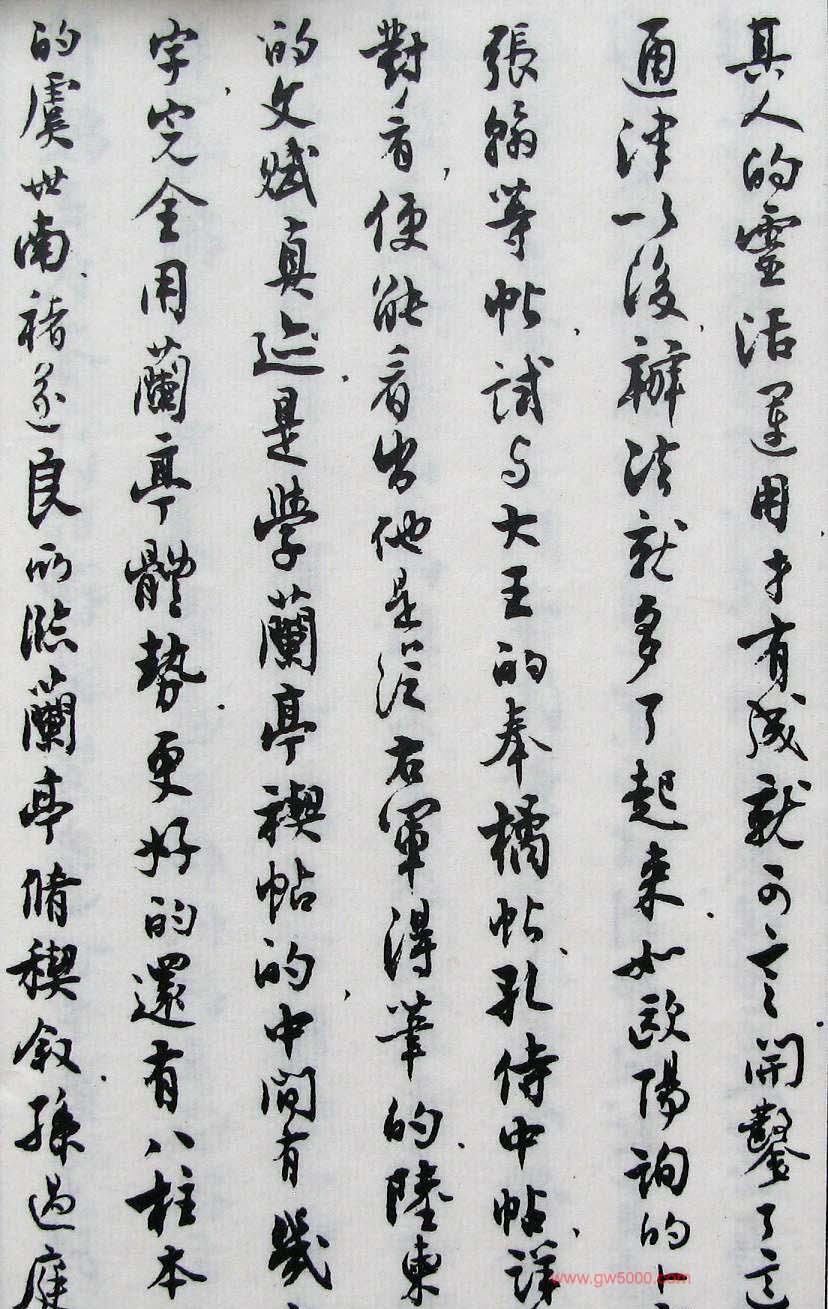 其人的靈活運用才有成就可言開鑿了這
通津以後辦法就多了起來如歐陽詢的卜
張翰等帖試与大王的奉橘帖孔侍中帖詳
對看便能看出他是從右軍得筆的陸柬
的文賦真迹是學蘭亭禊帖的中間有幾
字完全用蘭亭體勢更好的還有八柱本
的虞世南褚遂良所臨蘭亭脩禊叙孫過庭
www.gw5000.com